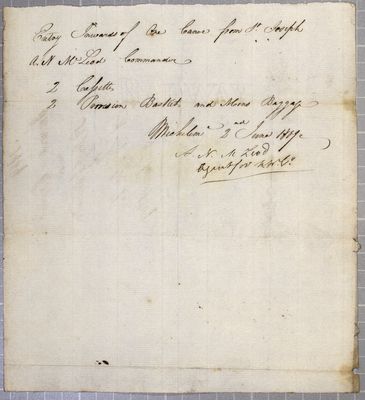 Entry Inwards of One Canoe from St. Joseph
A. N. McLeod Commander
2 Cassetts
2 Provision Baskets and Mens Baggage
Michilimc 2nd June 1807
A. N. McLeod
Agent for NW Co.